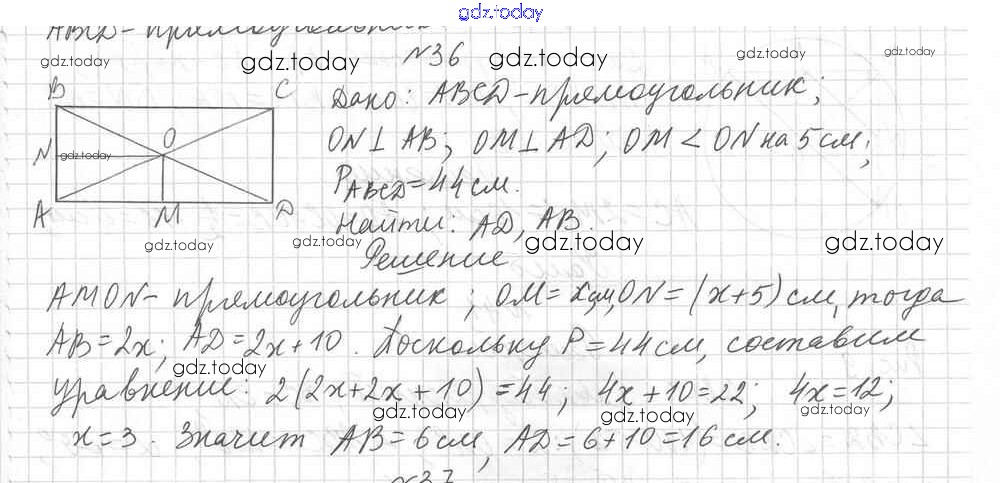 gdz.today
ABCD - прямоугольник
gdz.today gdz.today №36 gdz.today gdz.today gdz.today
B C Дано: ABCD - прямоугольник;
N gdz.today O ON ⊥ AB; OM ⊥ AD; OM < ON на 5 см;
P ABCD = 44 см.
A M D Найти: AD, AB.
gdz.today gdz.today gdz.today gdz.today
Решение
AMON - прямоугольник; OM = x см, ON = (x+5) см, тогда
AB = 2x; AD = 2x + 10. Поскольку P = 44 см, составим
gdz.today
уравнение: 2(2x + 2x + 10) = 44; 4x + 10 = 22; 4x = 12;
gdz.today gdz.today gdz.today
x = 3. Значит AB = 6 см, AD = 6 + 10 = 16 см.
№37